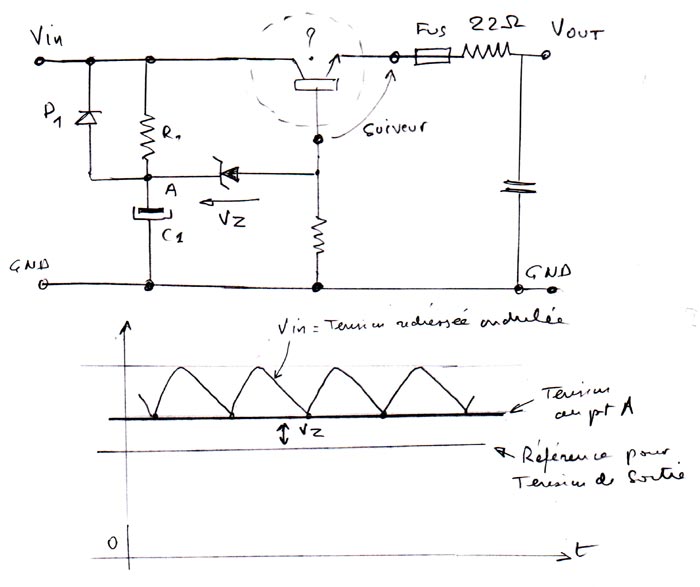 Vin
?
FUS
22Ω
VOUT
D1
R1
Suiveur
A
VZ
C1
GND
GND
Vin = Tension redressée ondulée
Tension
au pt A
VZ
Référence pour
Tension de Sortie
0
t